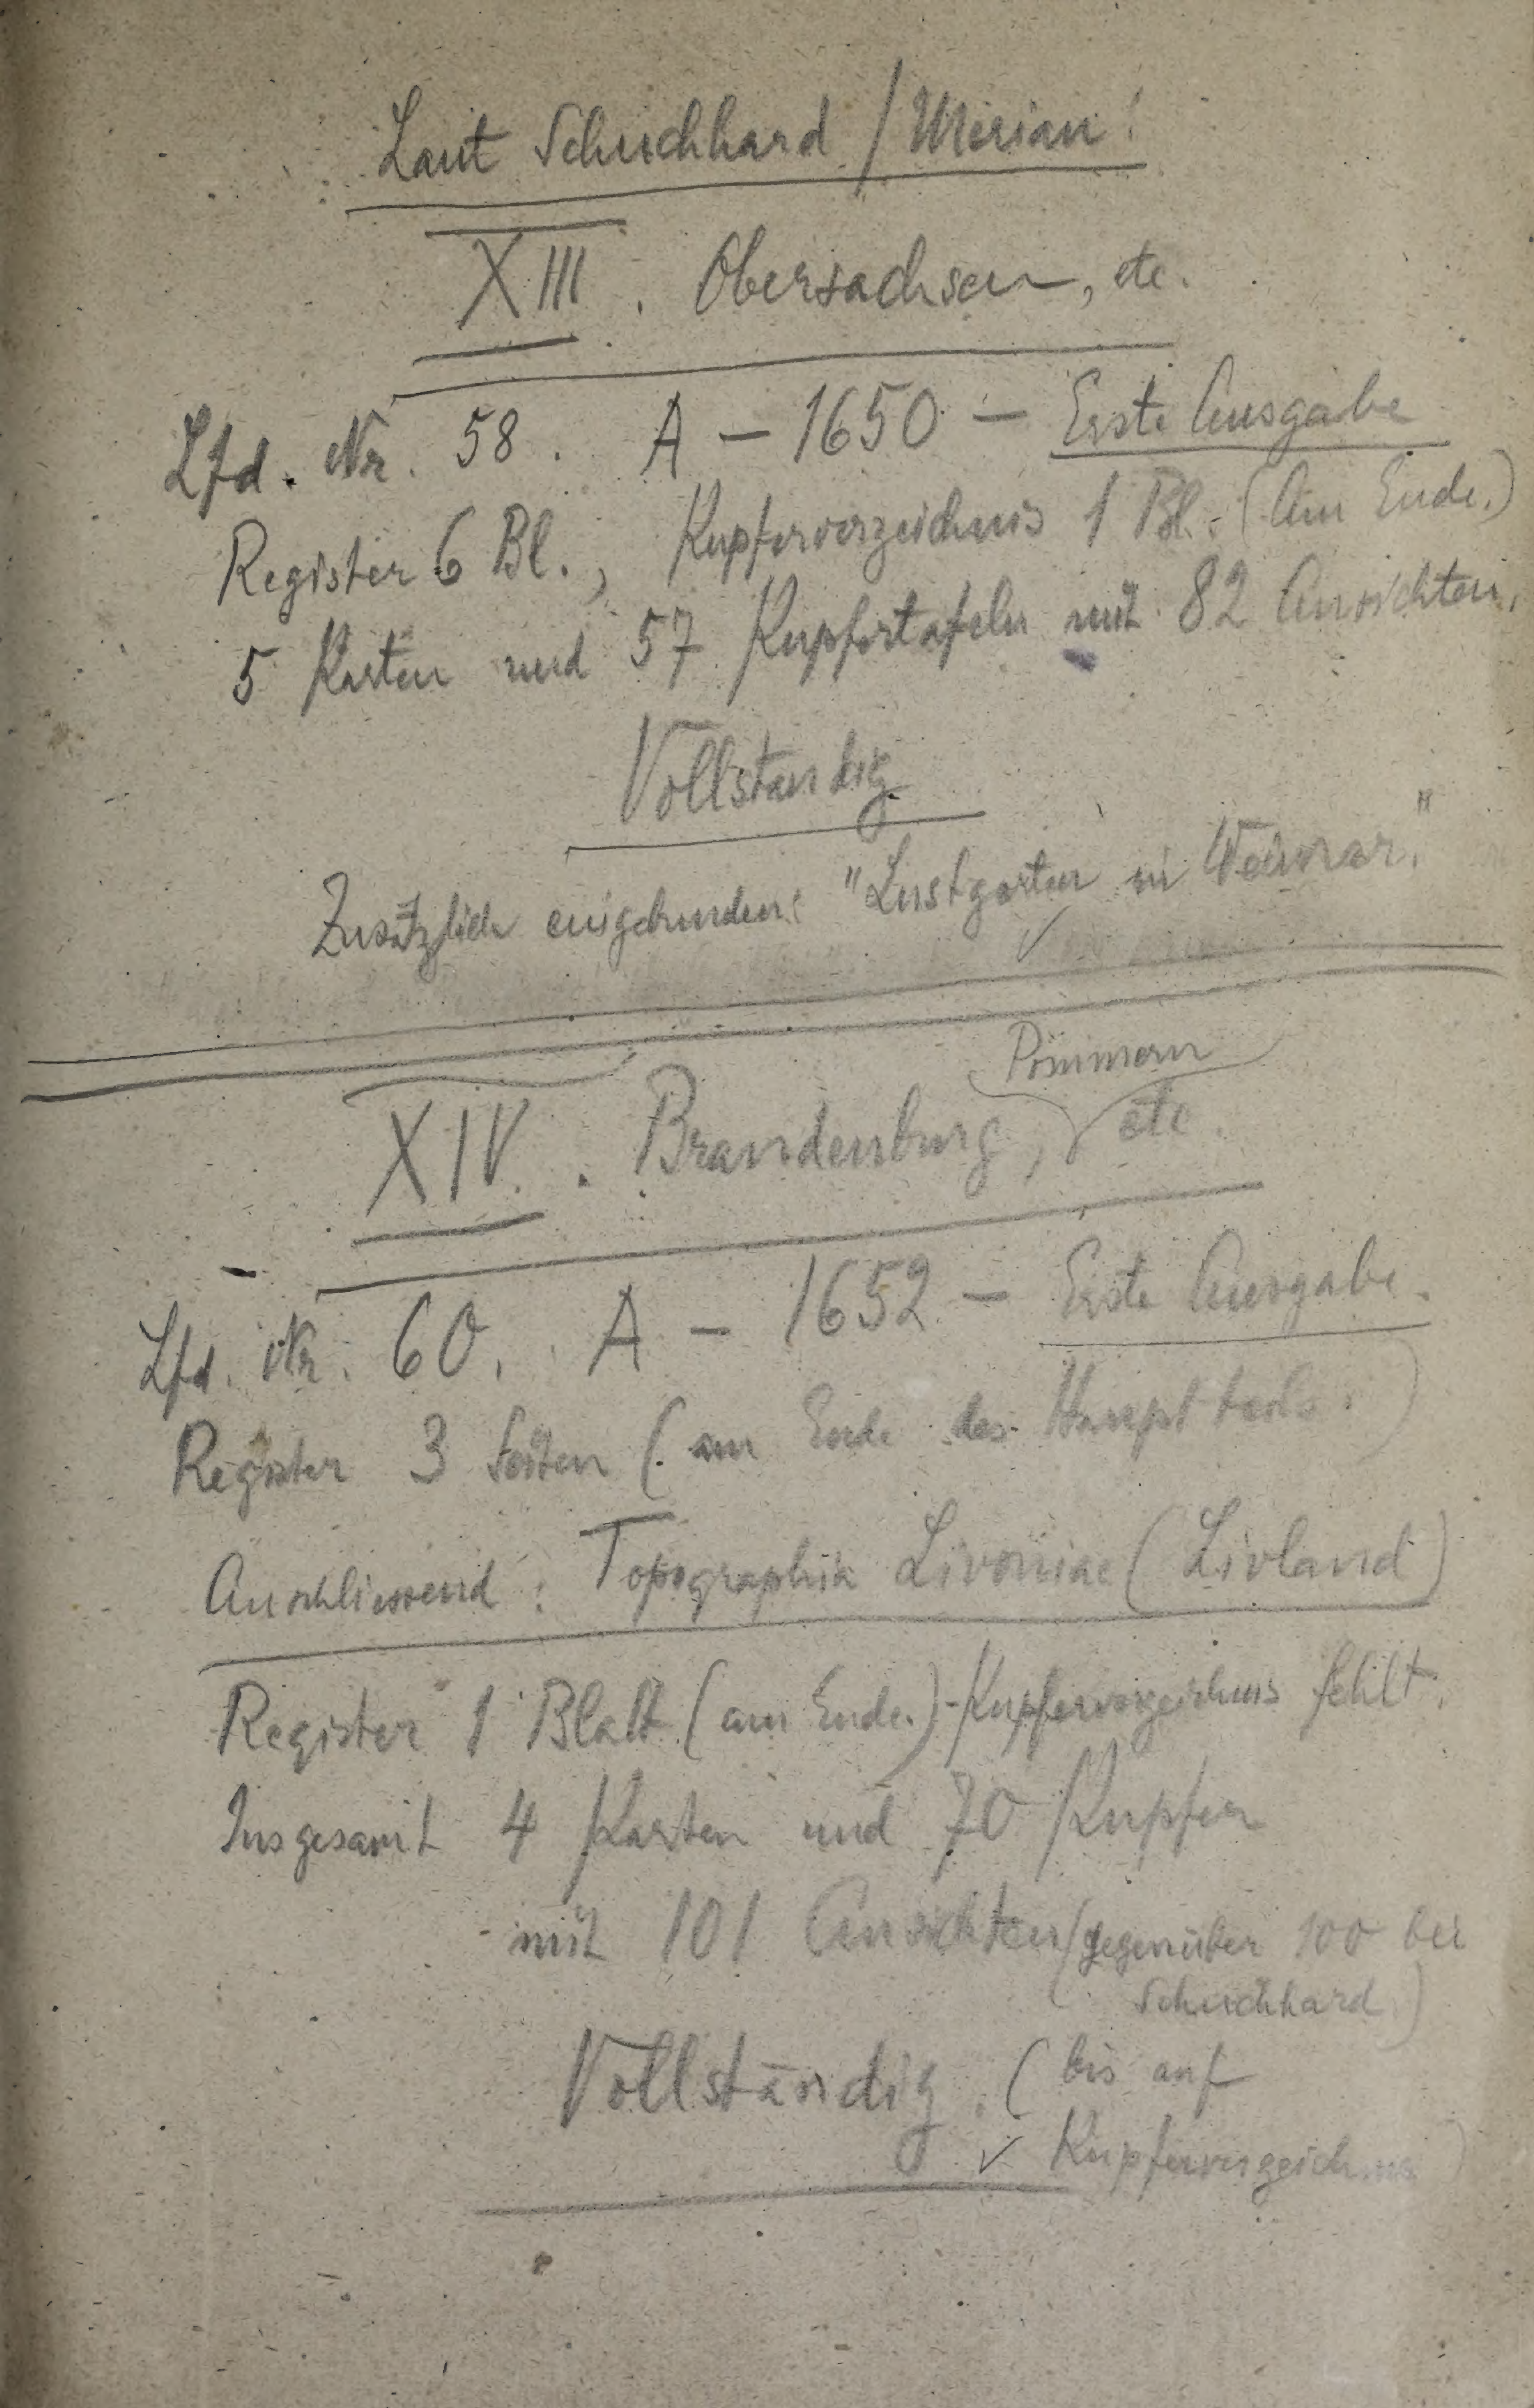 Laut Schuchhard / Merian!
XIII. Obersachsen, etc.
Lfd. Nr. 58. A — 1650 — Erste Ausgabe
Register 6 Bl., Kupferverzeichnis 1 Bl. (Am Ende.)
5 Karten und 57 Kupfertafeln mit 82 Ansichten.
Vollständig
Zusätzlich eingebunden: "Lustgarten in Weimar."
Pommern
XIV. Brandenburg, etc.
Lfd. Nr. 60. A — 1652 — Erste Ausgabe.
Register 3 Seiten (am Ende des Hauptteils.)
Anschliessend: Topographia Livoniae (Livland)
Register 1 Blatt (am Ende.) - Kupferverzeichnis fehlt.
Insgesamt 4 Karten und 70 Kupfer
mit 101 Ansichten (gegenüber 100 bei
Schuchhard.)
Vollständig. (bis auf
✓ Kupferverzeichnis)